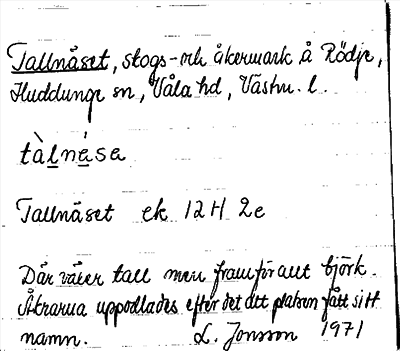 Tallnäset, skogs- och åkermark å Rödje,
Huddunge sn, Våla hd, Västm. l.
tàlnésa
Tallnäset ek. 12H 2e
Där växer tall men framför allt björk.
Åkrarna uppodlades efter det att platsen fått sitt
namn. L. Jonsson 1971